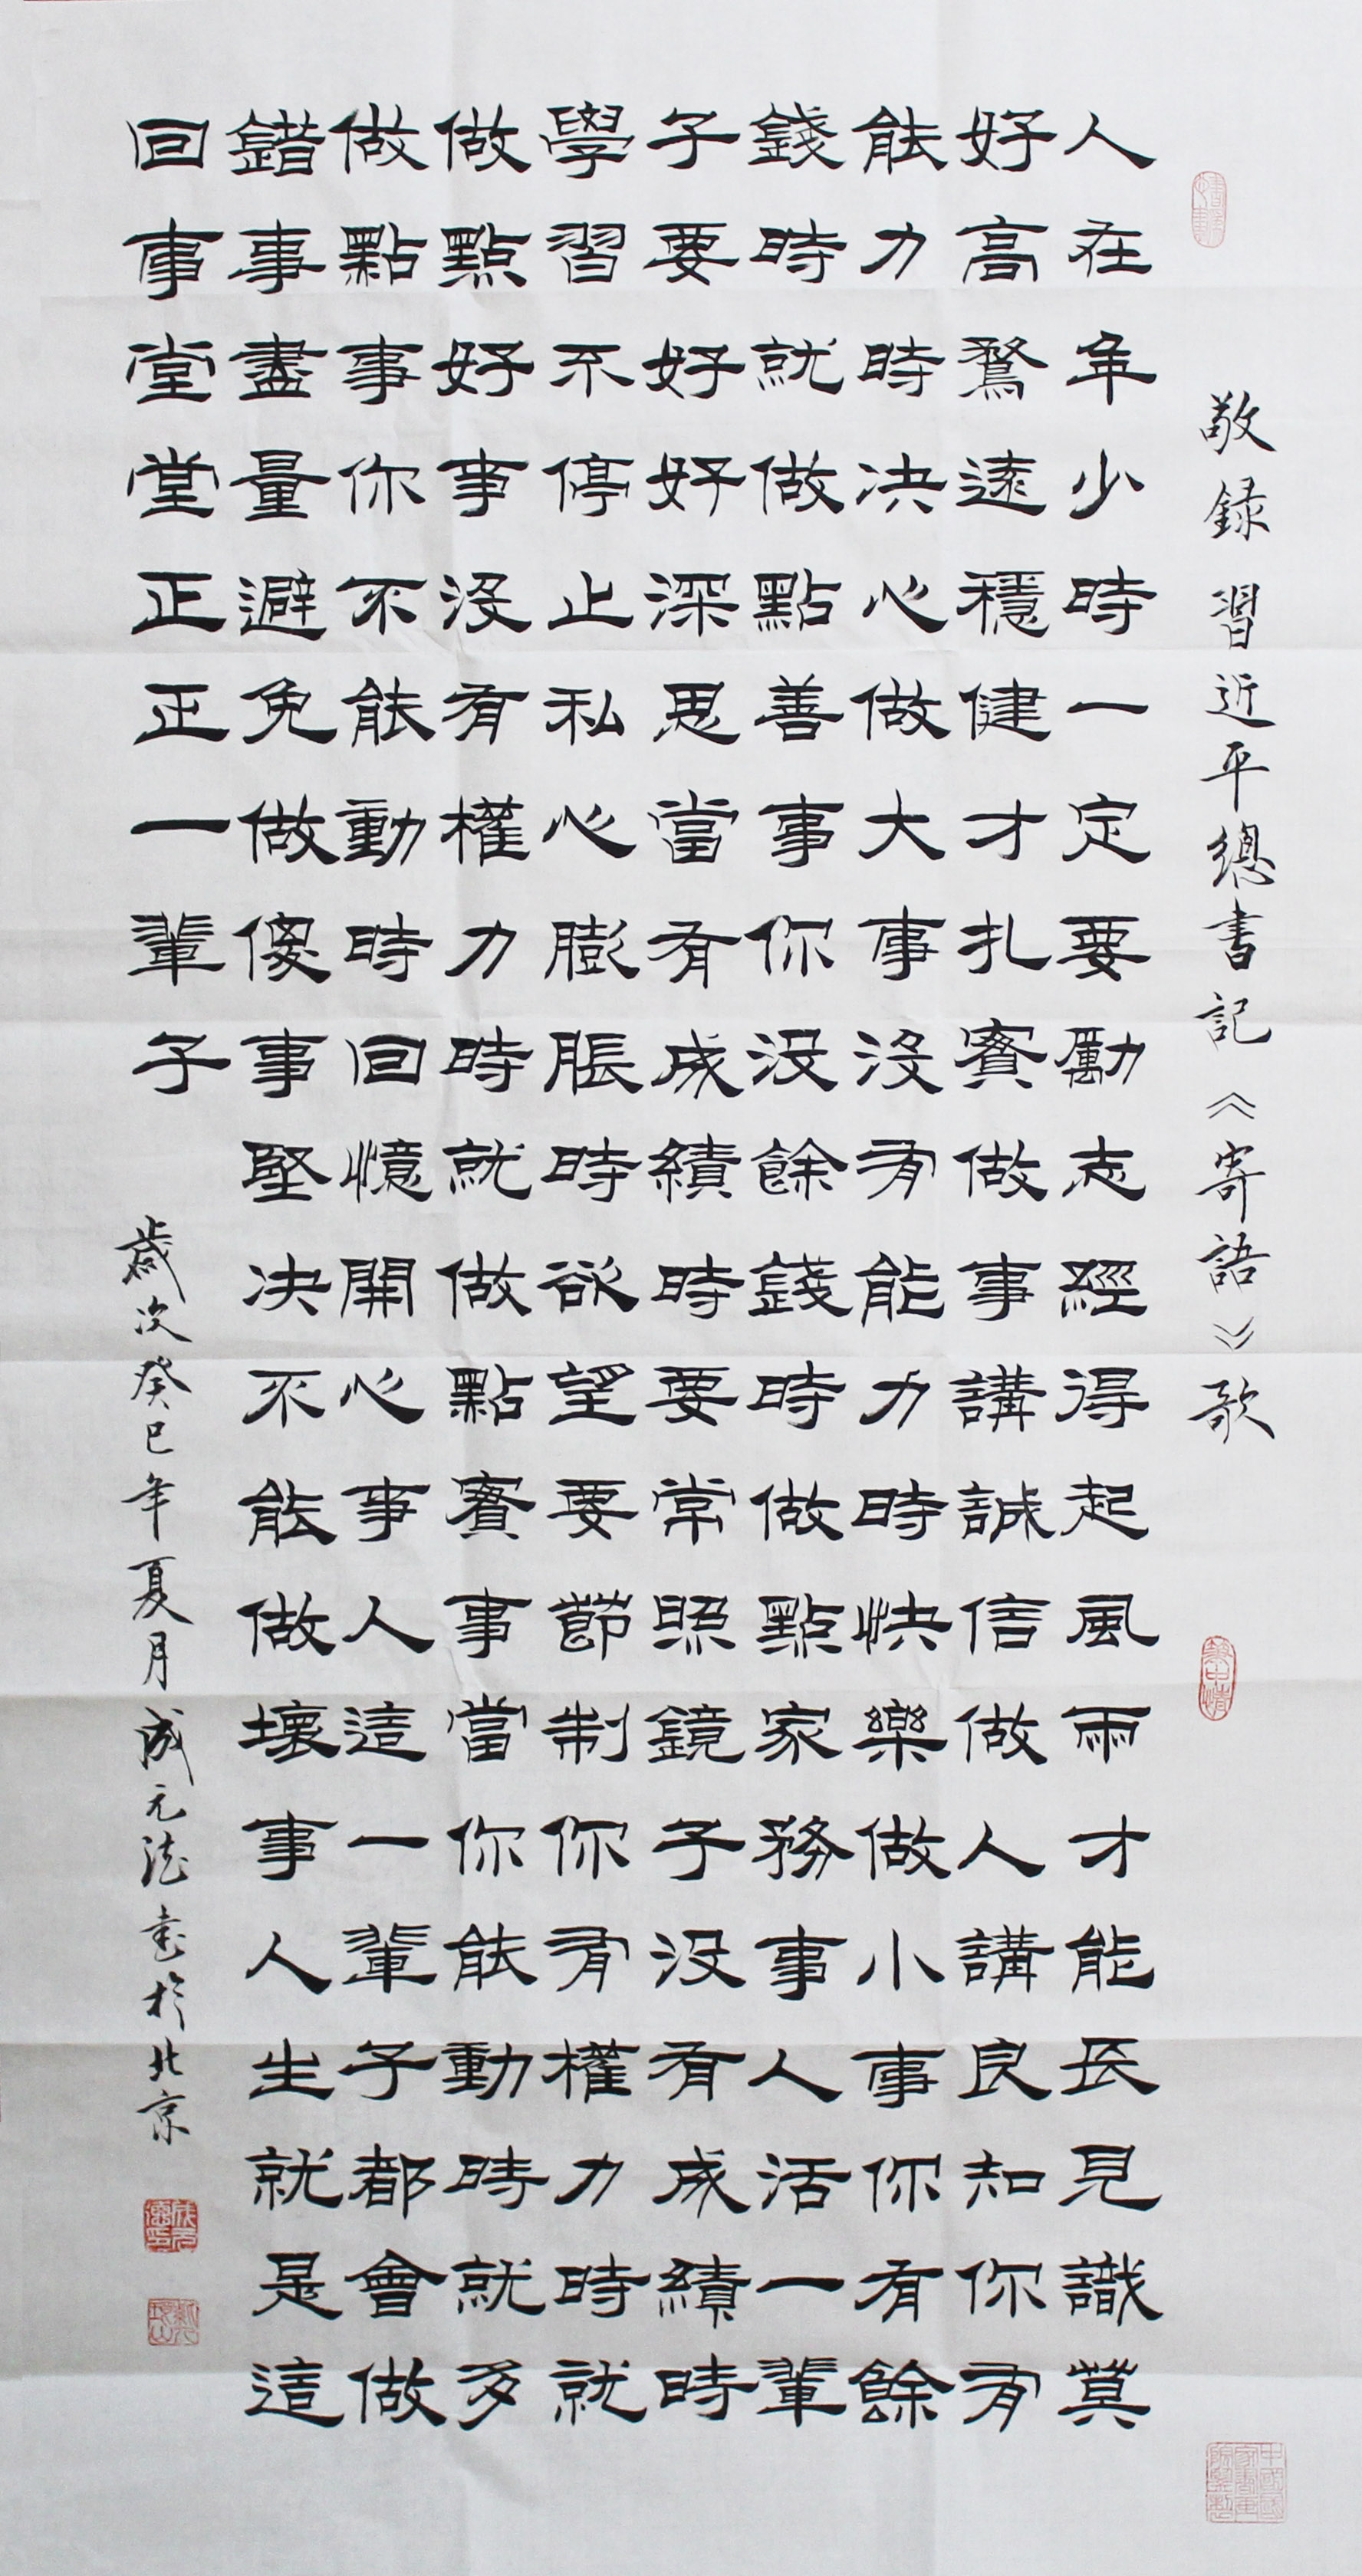 敬録習近平總書記《寄語》歌
人在年少時一定要勵志經得起風雨才能長見識莫
好高騖遠穩健才扎實做事講誠信做人講良知你有
能力時决心做大事沒有能力時快樂做小事你有餘
錢時就做點善事你沒餘錢時做點家務事人活一輩
子要好好深思當有成績時要常照鏡子沒有成績時
學習不停止私心膨脹時欲望要節制你有權力時就
做點好事沒有權力時就做點實事當你能動時就多
做點事你不能動時回憶開心事人這一輩子都會做
錯事盡量避免做傻事堅决不能做壞事人生就是這
回事堂堂正正一輩子
歲次癸巳年夏月成元法書於北京